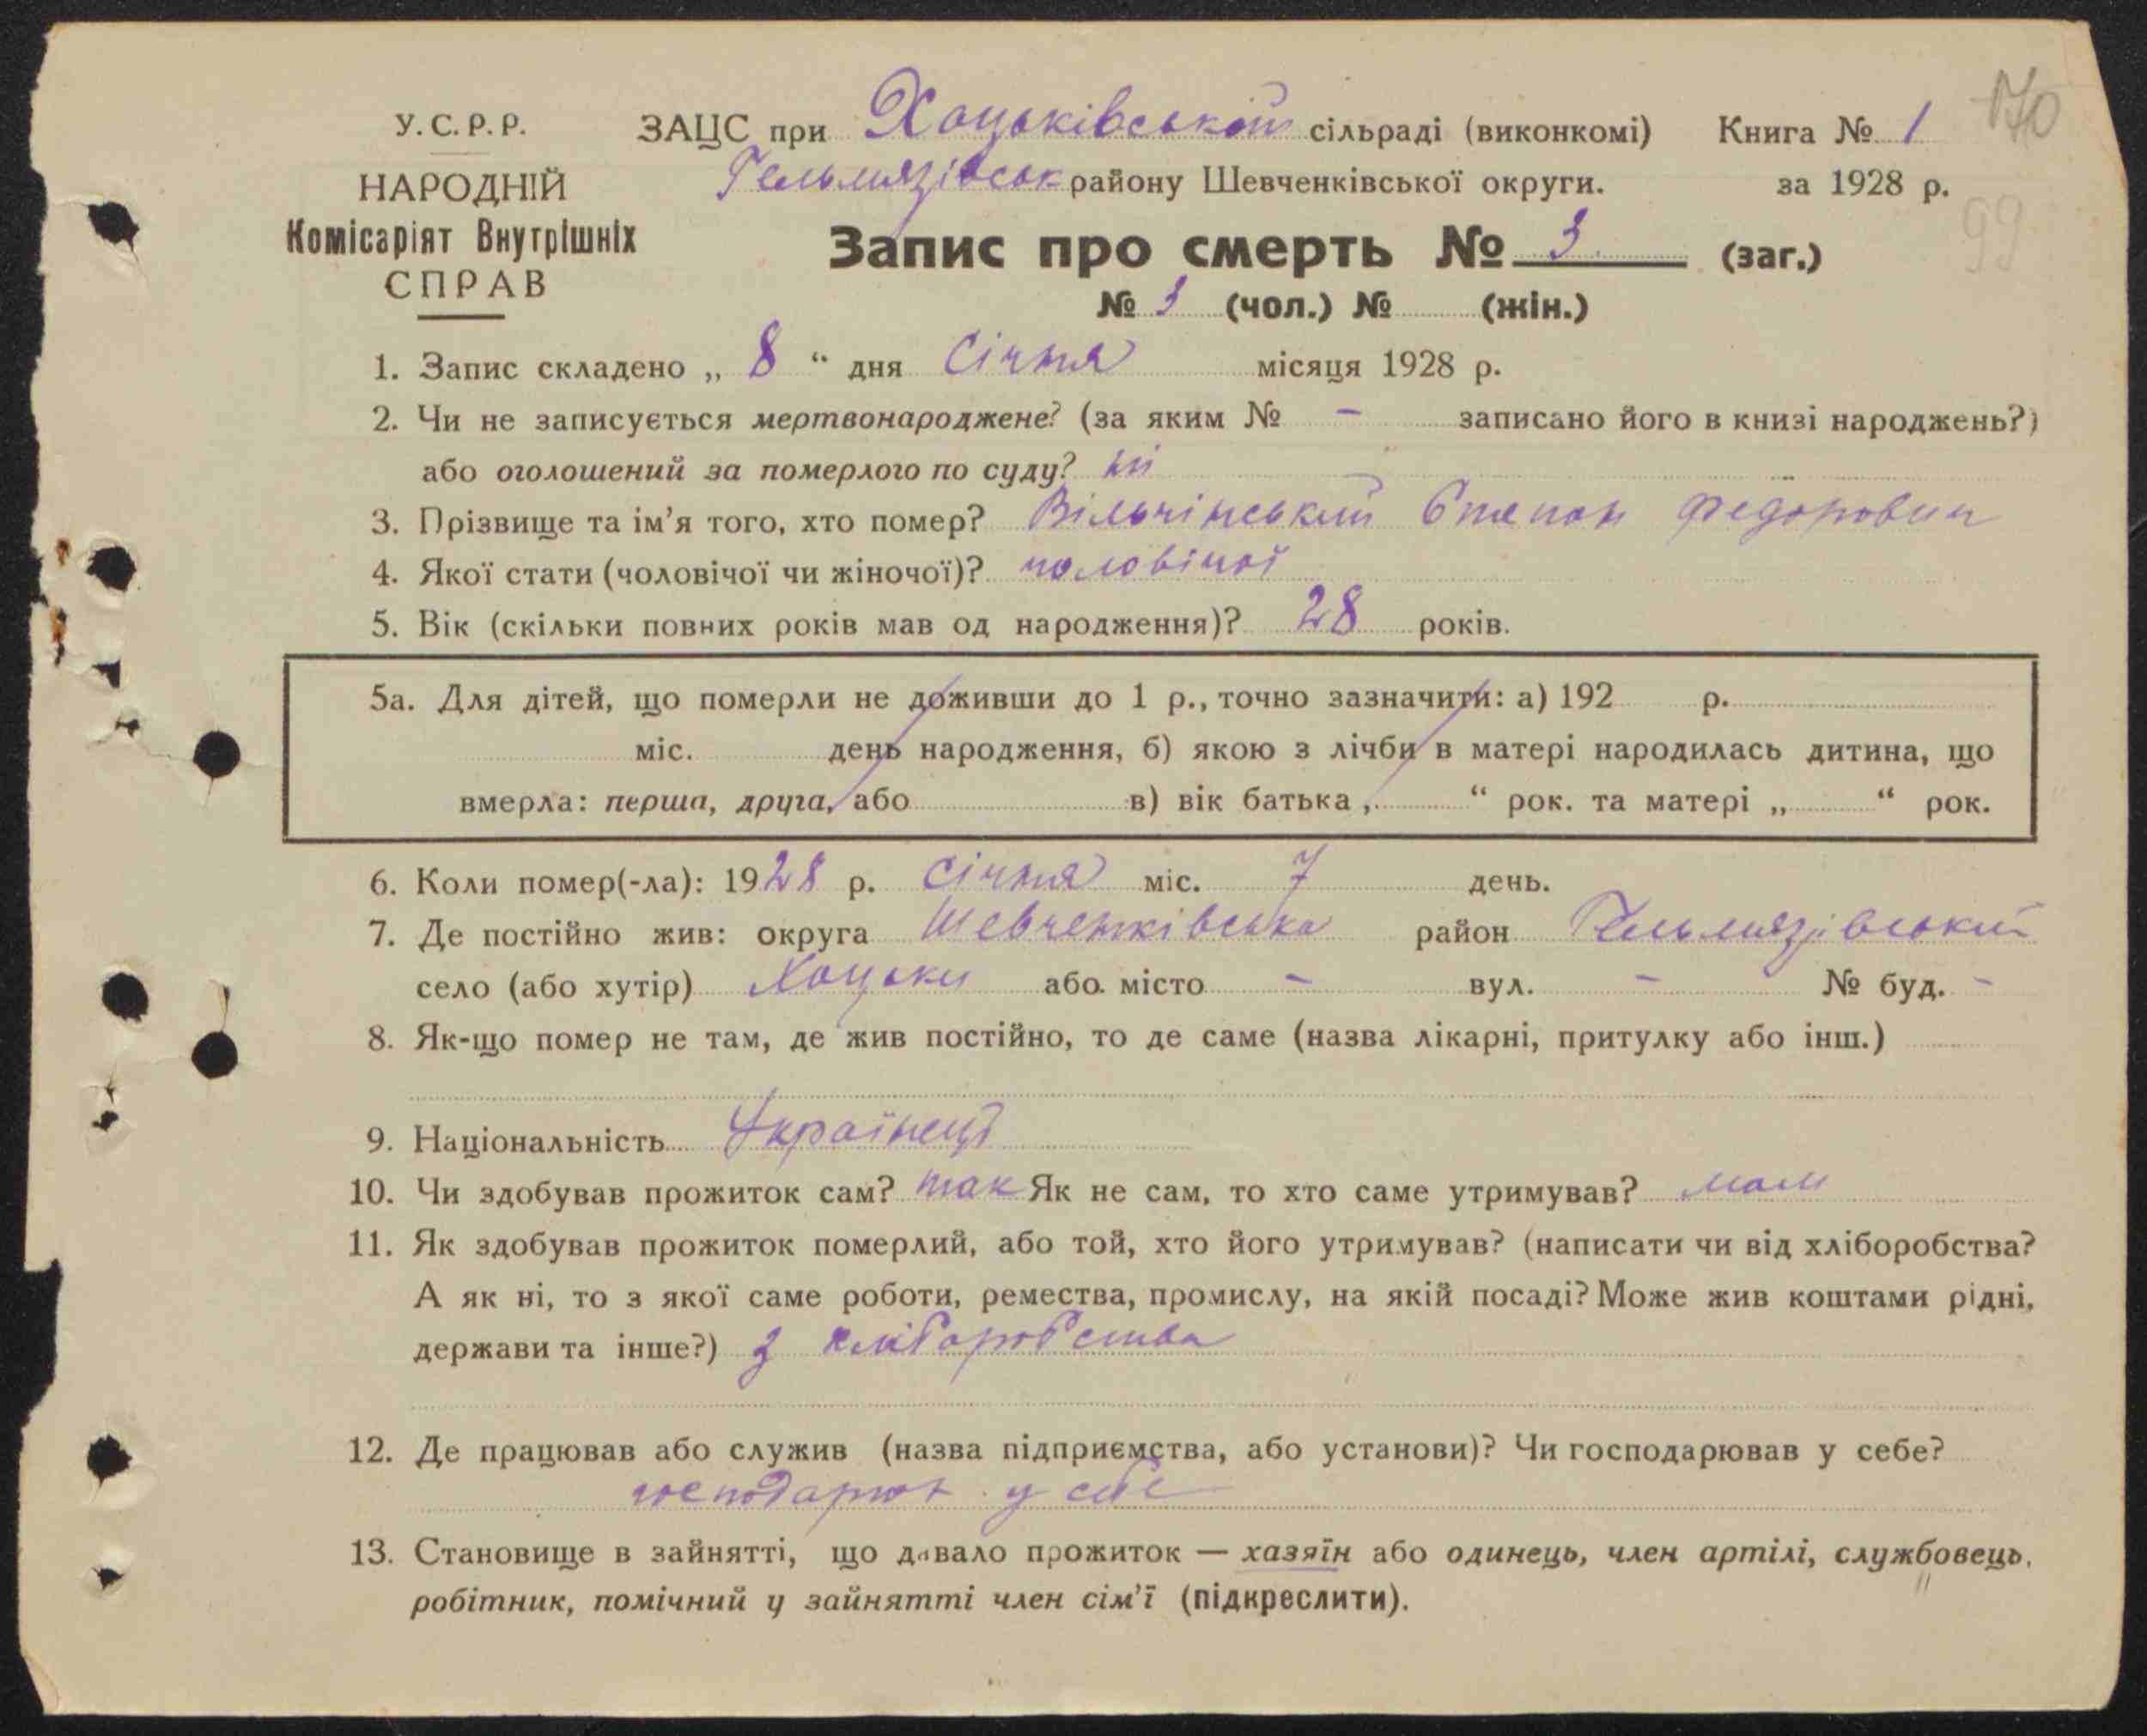 У. С. Р. Р.
НАРОДНІЙ
Комісаріят Внутрішніх
СПРАВ
ЗАЦС при Хоцьківській сільраді (виконкомі) Книга № 1
Гельмязівськ району Шевченківської округи. за 1928 р.
170
99
Запис про смерть № 3 (заг.)
№ 3 (чол.) № (жін.)
1. Запис складено „ 8 “ дня Січня місяця 1928 р.
2. Чи не записується мертвонароджене? (за яким № – записано його в книзі народжень?)
або оголошений за померлого по суду? ні
3. Прізвище та ім’я того, хто помер? Вільчінський Степан Федорович
4. Якої стати (чоловічої чи жіночої)? чоловічої
5. Вік (скільки повних років мав од народження)? 28 років.
5а. Для дітей, що померли не доживши до 1 р., точно зазначити: а) 192 р.
міс. день народження, б) якою з лічби в матері народилась дитина, що
вмерла: перша, друга, або в) вік батька „ “ рок. та матері „ “ рок.
6. Коли помер(-ла): 1928 р. Січня міс. 7 день.
7. Де постійно жив: округа Шевченківська район Гельмязівський
село (або хутір) Хоцьки або місто – вул. – № буд. –
8. Як-що помер не там, де жив постійно, то де саме (назва лікарні, притулку або інш.)
9. Національність Українець
10. Чи здобував прожиток сам? так Як не сам, то хто саме утримував?
11. Як здобував прожиток померлий, або той, хто його утримував? (написати чи від хліборобства?
А як ні, то з якої саме роботи, ремества, промислу, на якій посаді? Може жив коштами рідні,
держави та інше?) з хліборобства
12. Де працював або служив (назва підприємства, або установи)? Чи господарював у себе?
у себе
13. Становище в зайнятті, що давало прожиток — хазяїн або одинець, член артілі, службовець,
робітник, помічний у зайнятті член сім’ї (підкреслити).